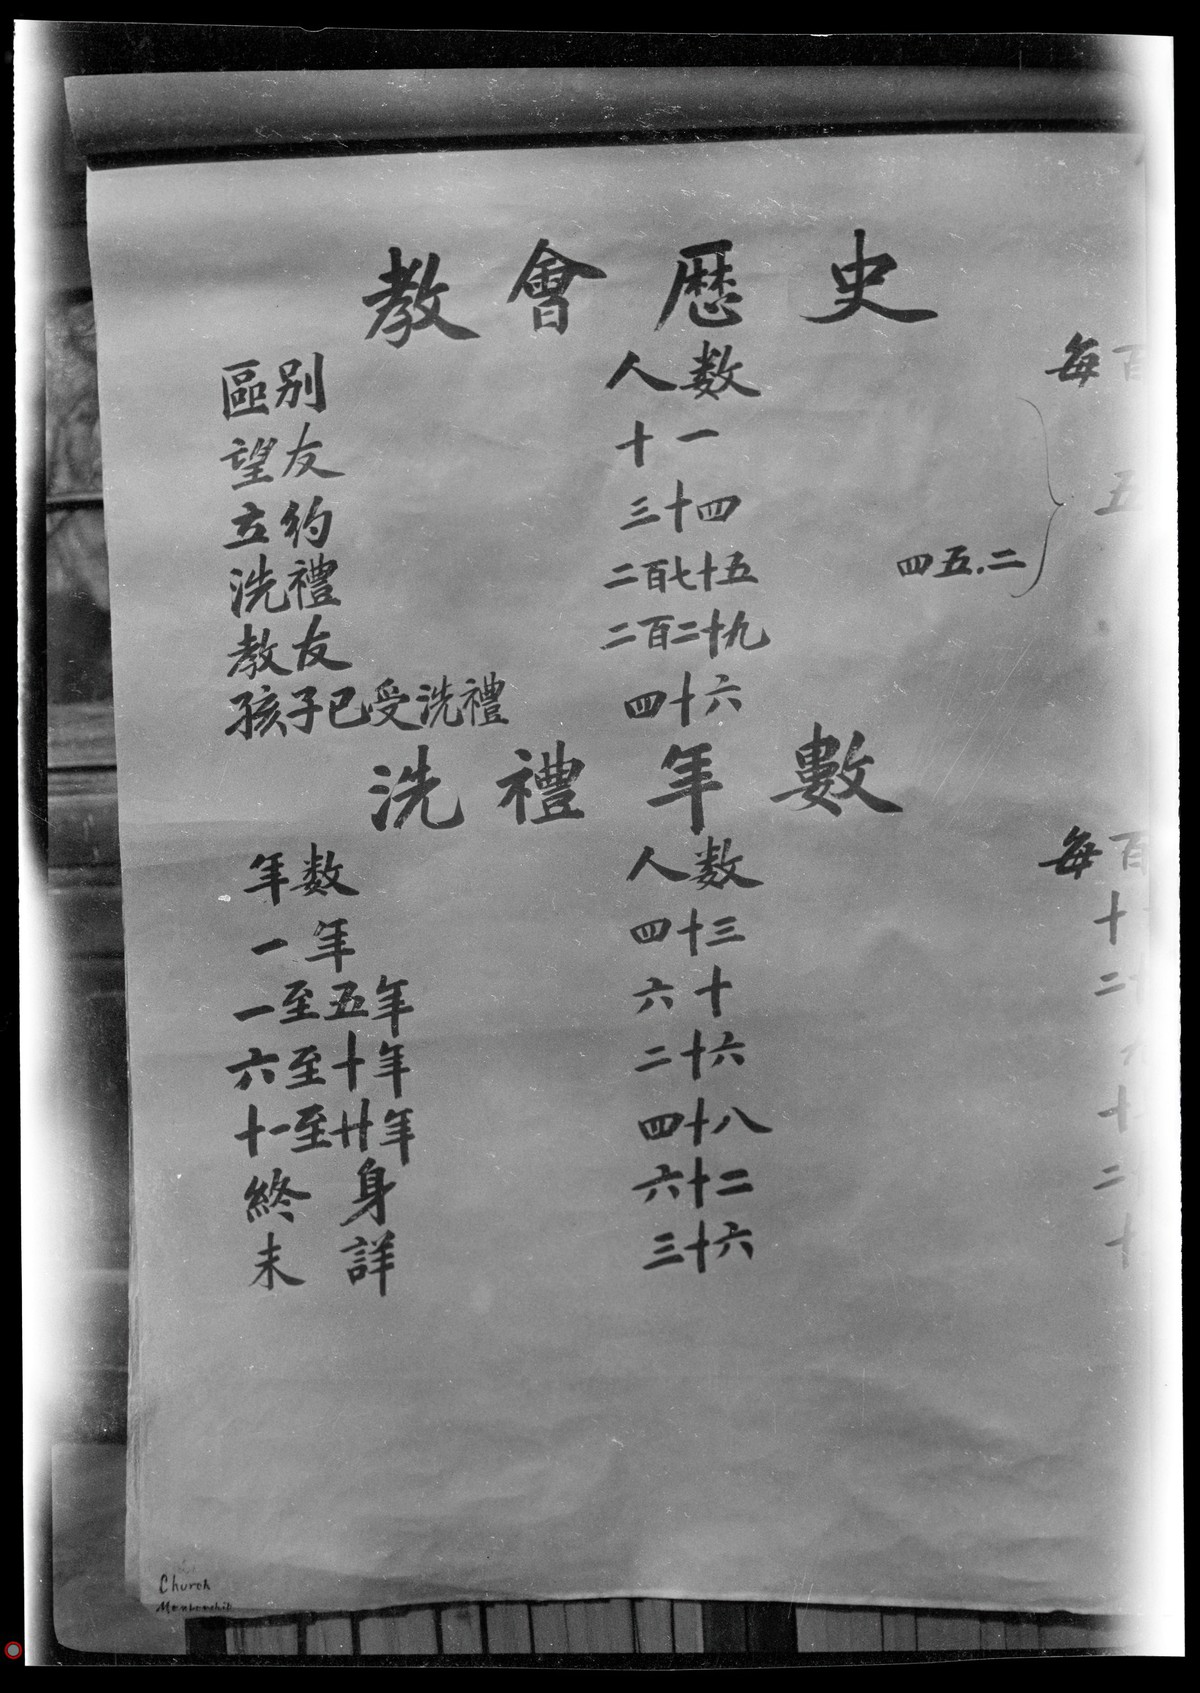 教會歷史
區别 人数 每百
望友 十一
立約 三十四 五
洗禮 二百七十五 四五.二
教友 二百二十九
孩子已受洗禮 四十六
洗禮年數
年数 人数 每百
一年 四十三 十
一至五年 六十 二十
六至十年 二十六
十一至廿年 四十八 十
終身 六十二 二
未詳 三十六 十
Church
Membership